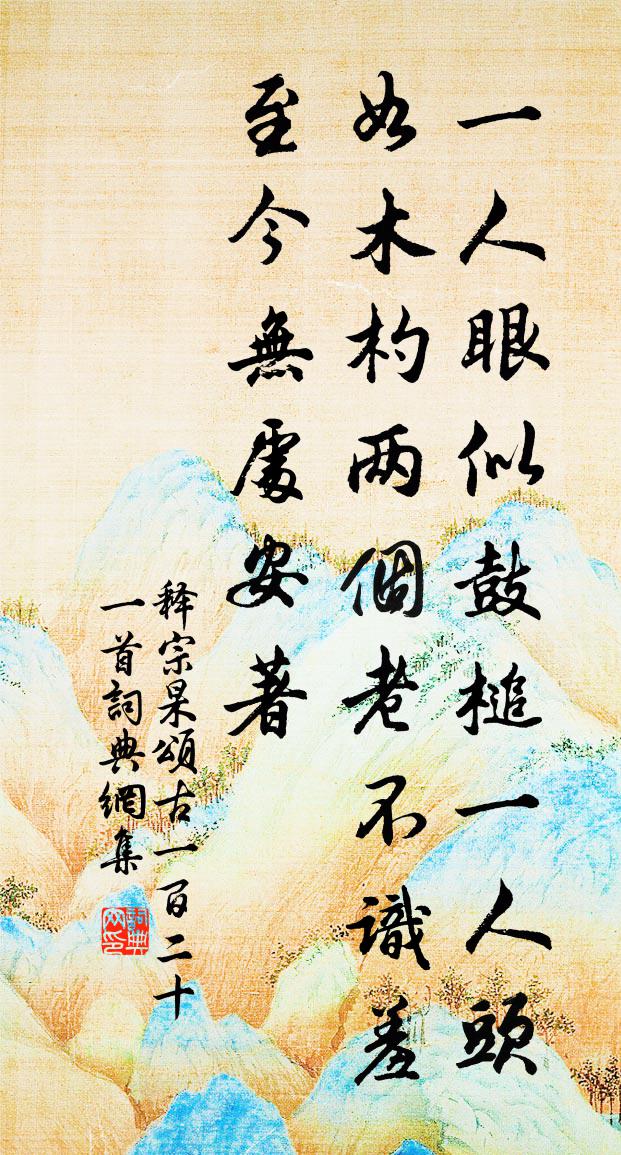 一人眼似鼓槌一人頭
如木杓两個老不識羞
至今無處安著
释宗杲頌古一百二十
一首詞典網集
詞典网印